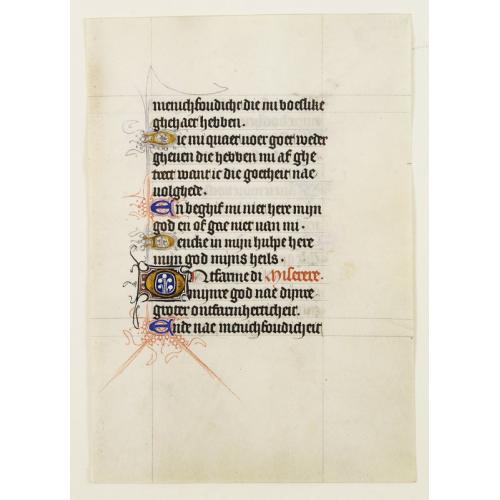 menichfoudicht die mi boeslike
ghehaet hebben.
Die mi quaet voer goet weder
gheuen die hebben mi af ghe
trect want ic die goetheit nae
volghede.
En beghif mi niet here mijn
god en of gae niet van mi.
Dencke in mijn hulpe here
mijn god mijns heils.
Ontfarme di Miserere.
mijnre god nae dijnre
groter ontfarmherticheit.
Ende nae menichfoudicheit